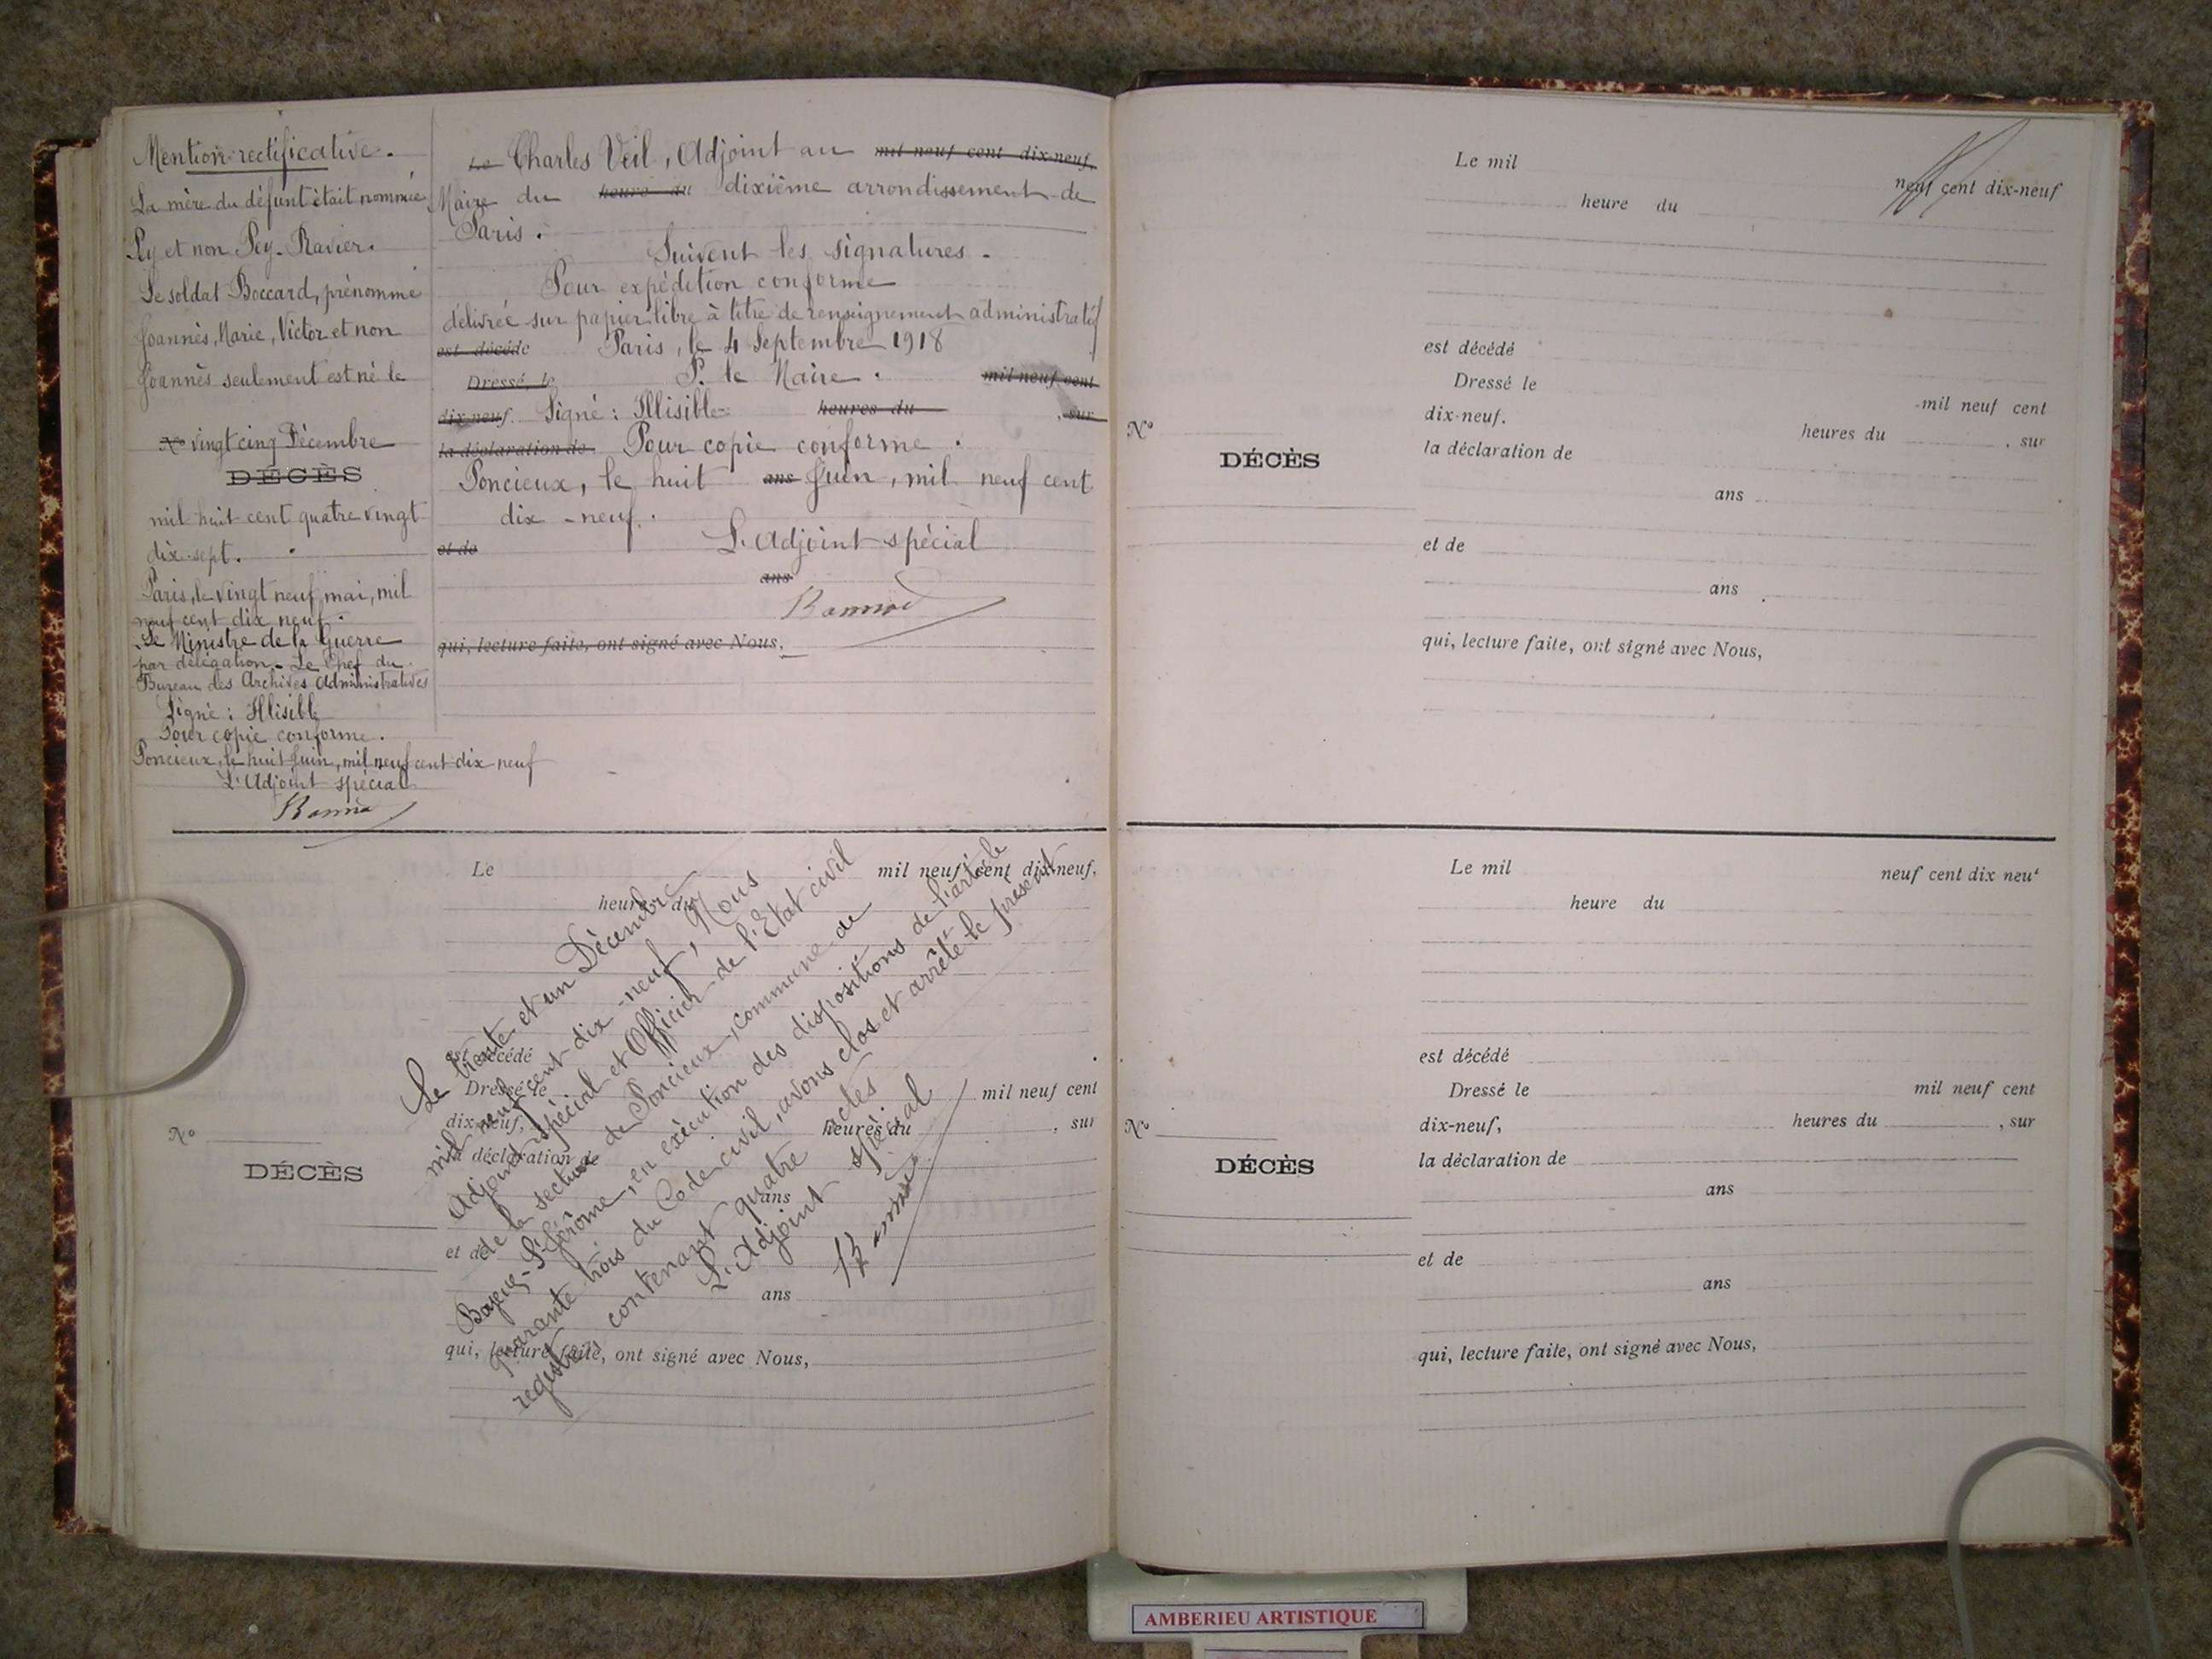 Mention rectificative.
La mère du défunt était nommée
Ry et non Pey-Ravier.
Le soldat Boccard, prénommé
Joannès, Marie, Victor et non
Joannès seulement est né le
N° vingt cinq Décembre
DÉCÈS
mil huit cent quatre vingt
dix-sept.
Paris, le vingt neuf mai, mil
neuf cent dix neuf.
Le Ministre de la Guerre
par délégation. Le Chef du
Bureau des Archives Administratives
Signé : Illisible
Pour copie conforme.
Poncieux, le huit Juin, mil neuf cent dix neuf
L'Adjoint spécial
Le Charles Veil, Adjoint au mil neuf cent dix-neuf,
Maire du heure du dixième arrondissement de
Paris.
Suivent les signatures.
Pour expédition conforme
délivrée sur papier libre à titre de renseignement administratif
est décédé Paris, le 4 Septembre 1918
Dressé, le P. le Maire. mil neuf cent
dix-neuf. Signé : Illisible heures du , sur
la déclaration de Pour copie conforme.
Poncieux, le huit ans Juin, mil neuf cent
dix-neuf.
et de L'Adjoint spécial
ans
qui, lecture faite, ont signé avec Nous,
Le mil neuf cent dix-neuf,
heure du
est décédé
Dressé le mil neuf cent
dix-neuf, heures du , sur
N°
DÉCÈS
la déclaration de
ans
et de
ans
qui, lecture faite, ont signé avec Nous,
Le trente et un Décembre
mil neuf cent dix-neuf, Nous
Adjoint spécial et Officier de l'Etat civil
de la section de Poncieux, commune de
Boyeux-St Jérôme, en exécution des dispositions de l'article
quarante trois du Code civil, avons clos et arrêté le présent
registre contenant quatre actes
L'Adjoint spécial
Le mil
neuf cent dix-neuf
heure du
est décédé
Dressé le
mil neuf cent
dix-neuf.
heures du , sur
N°
DÉCÈS
la déclaration de
ans
et de
ans
qui, lecture faite, ont signé avec Nous,
Le mil neuf cent dix neuf
heure du
est décédé
Dressé le mil neuf cent
dix-neuf, heures du , sur
N°
DÉCÈS
la déclaration de
ans
et de
ans
qui, lecture faite, ont signé avec Nous,
AMBERIEU ARTISTIQUE